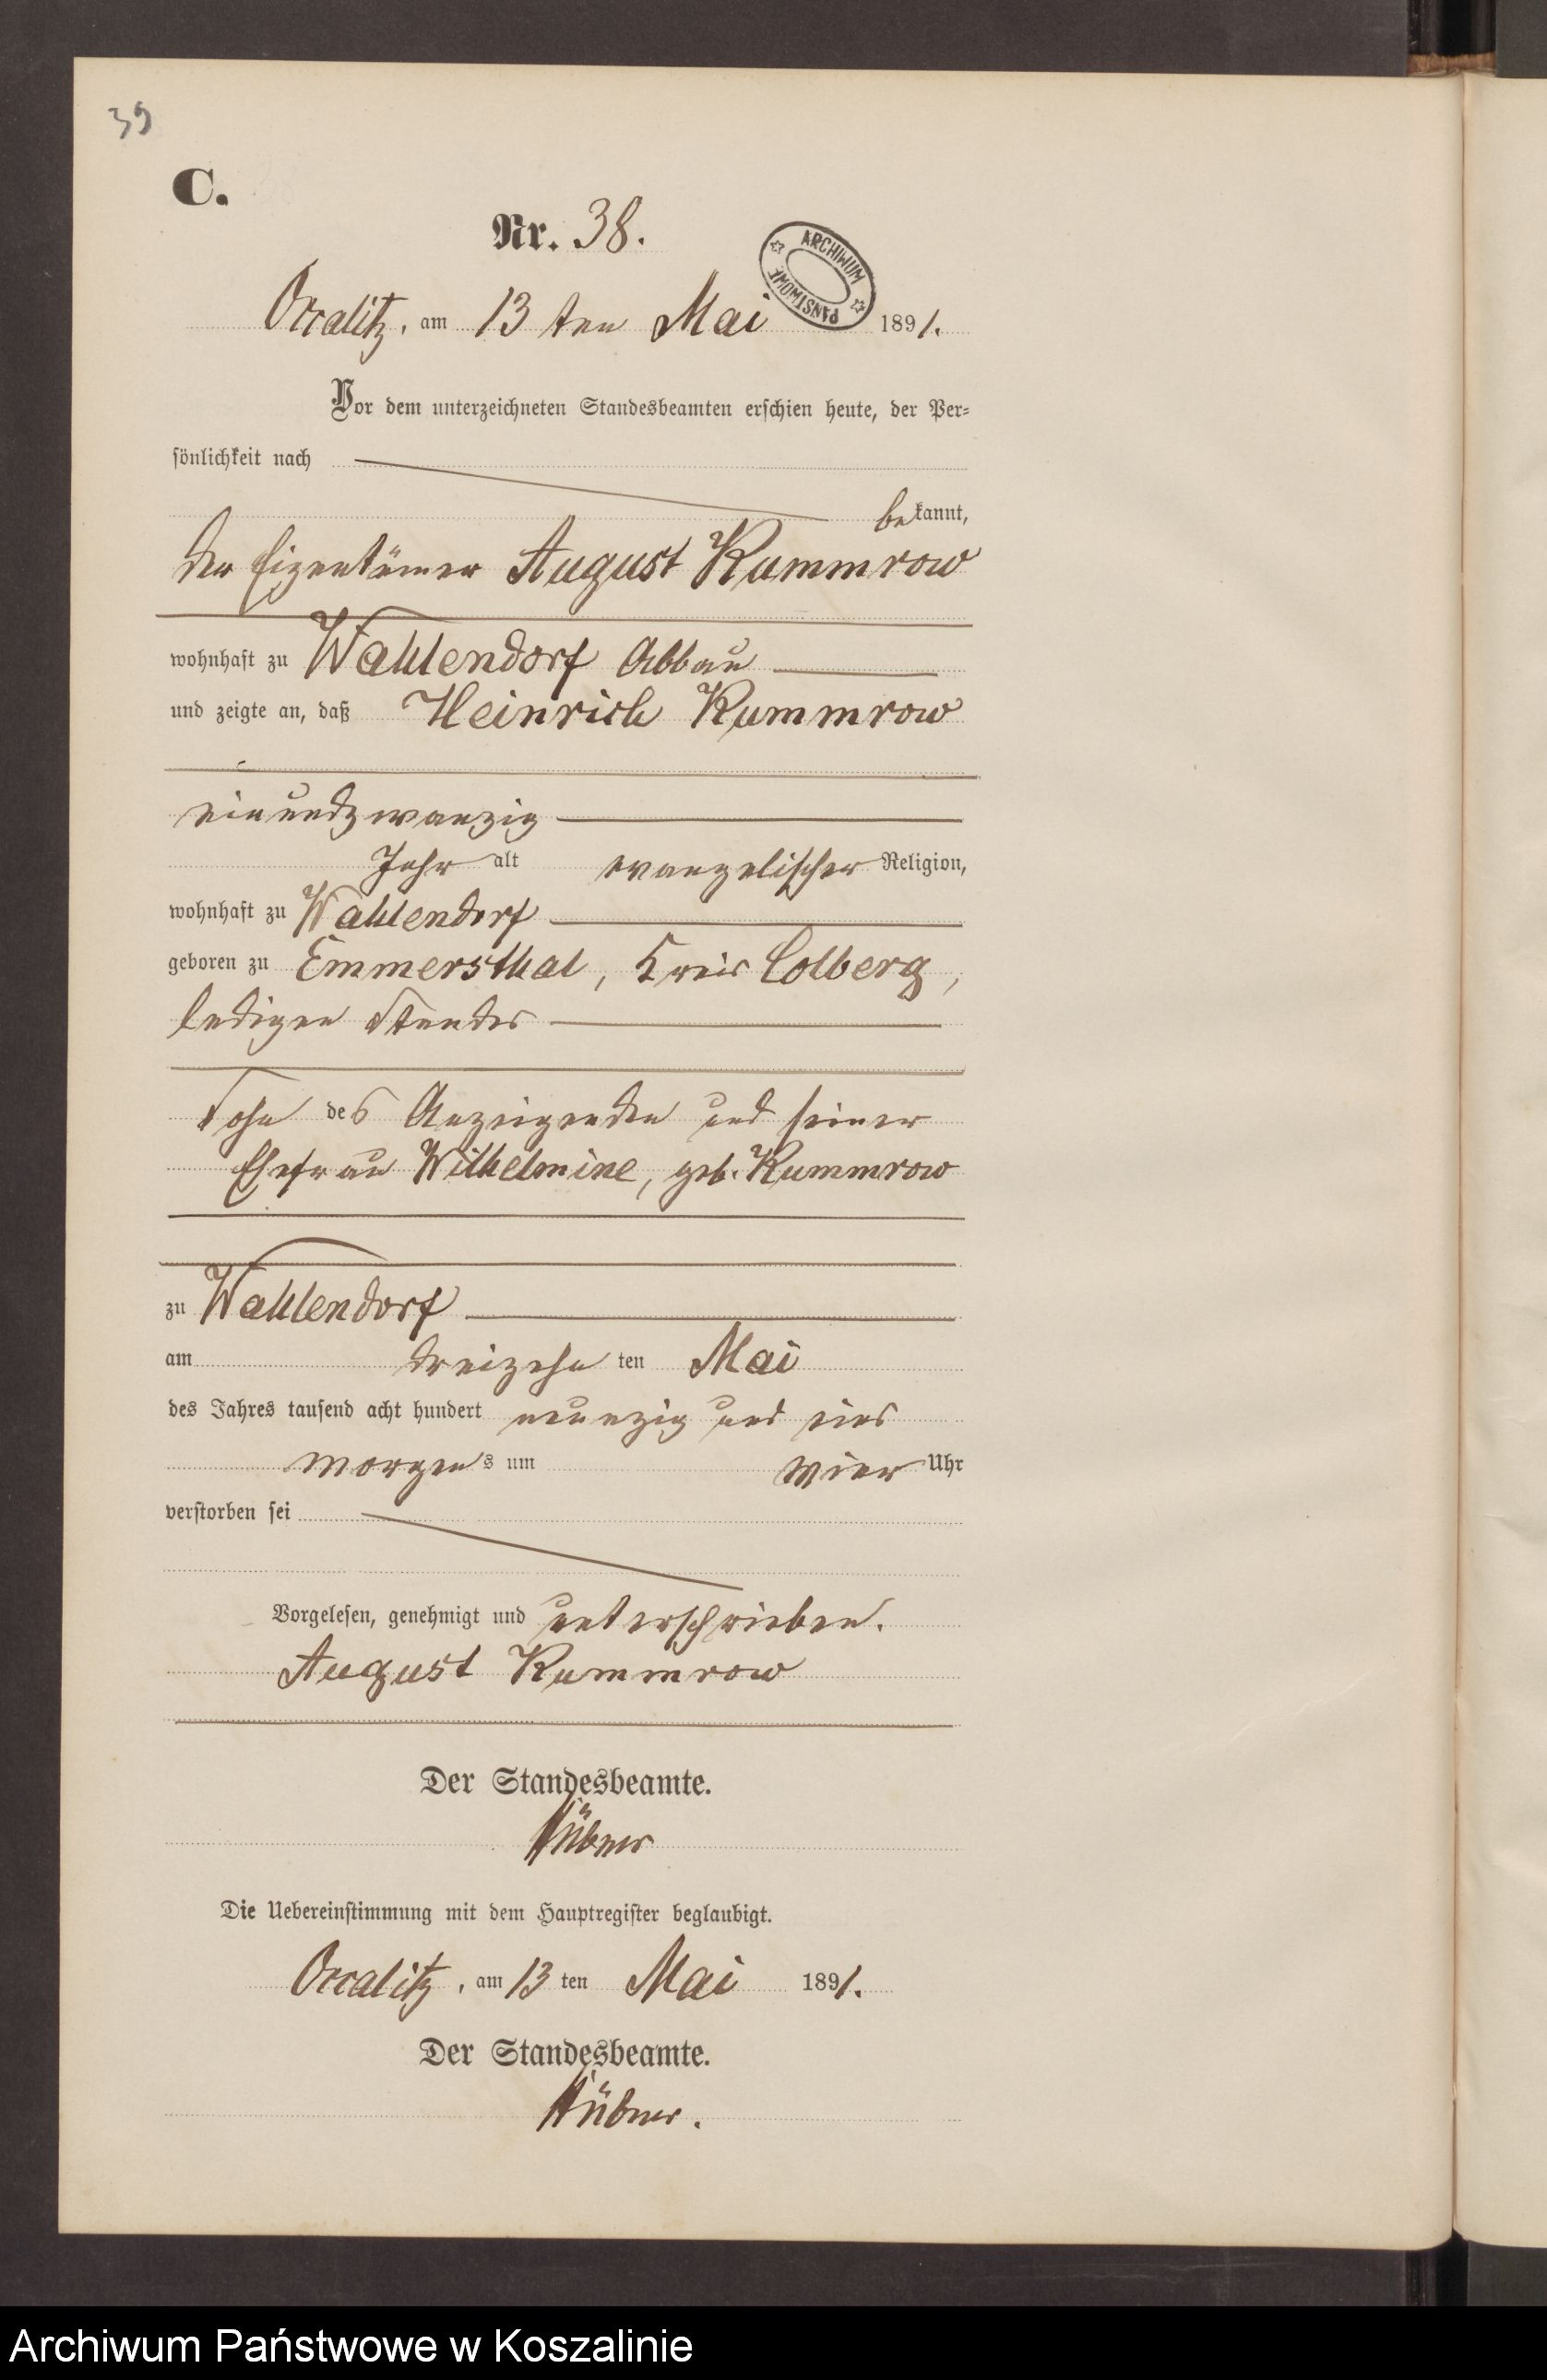 39
C.
Nr. 38.
ARCHIWUM PAŃSTWOWE
Orralitz, am 13 ten Mai 1891.
Vor dem unterzeichneten Standesbeamten erschien heute, der Per-
sönlichkeit nach
bekannt,
der Eigentümer August Kummrow
wohnhaft zu Wahlendorf Abbau
und zeigte an, daß Heinrich Kummrow
einundzwanzig
Jahr alt evangelischer Religion,
wohnhaft zu Wahlendorf
geboren zu Emmersthal, Kreis Colberg,
ledigen Standes
Sohn des Anzeigenden und seiner
Ehefrau Wilhelmine, geb. Kummrow
zu Wahlendorf
am dreizehn ten Mai
des Jahres tausend acht hundert neunzig und eins
Morgens um vier Uhr
verstorben sei
Vorgelesen, genehmigt und unterschrieben.
August Kummrow
Der Standesbeamte.
Hübner
Die Uebereinstimmung mit dem Hauptregister beglaubigt.
Orralitz, am 13 ten Mai 1891.
Der Standesbeamte.
Hübner.
Archiwum Państwowe w Koszalinie